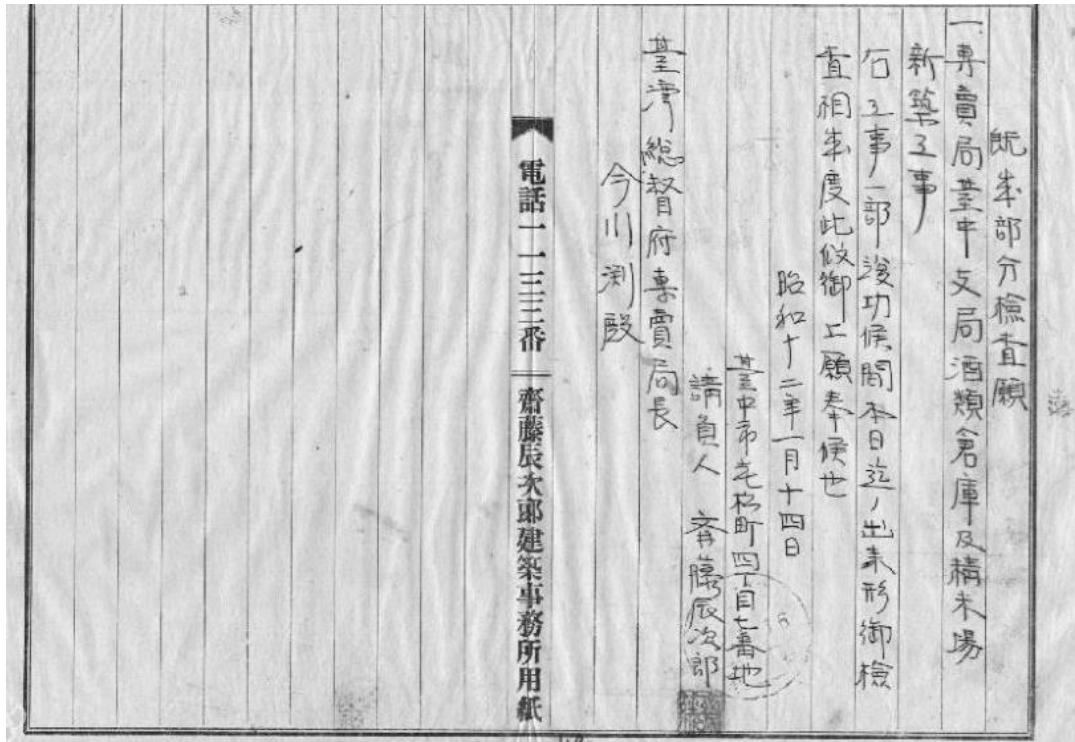 既成部分檢查願
一、專賣局臺中支局酒類倉庫及精米場
新築工事
右工事一部竣功候間本日迄ノ出来形御檢
查相成度此段御上願奉候也
昭和十二年一月十四日
臺中市老松町四丁目七番地
請負人 斉藤辰次郎
臺灣總督府專賣局長
今川渕殿
電話一一三三番 齋藤辰次郎建築事務所用紙